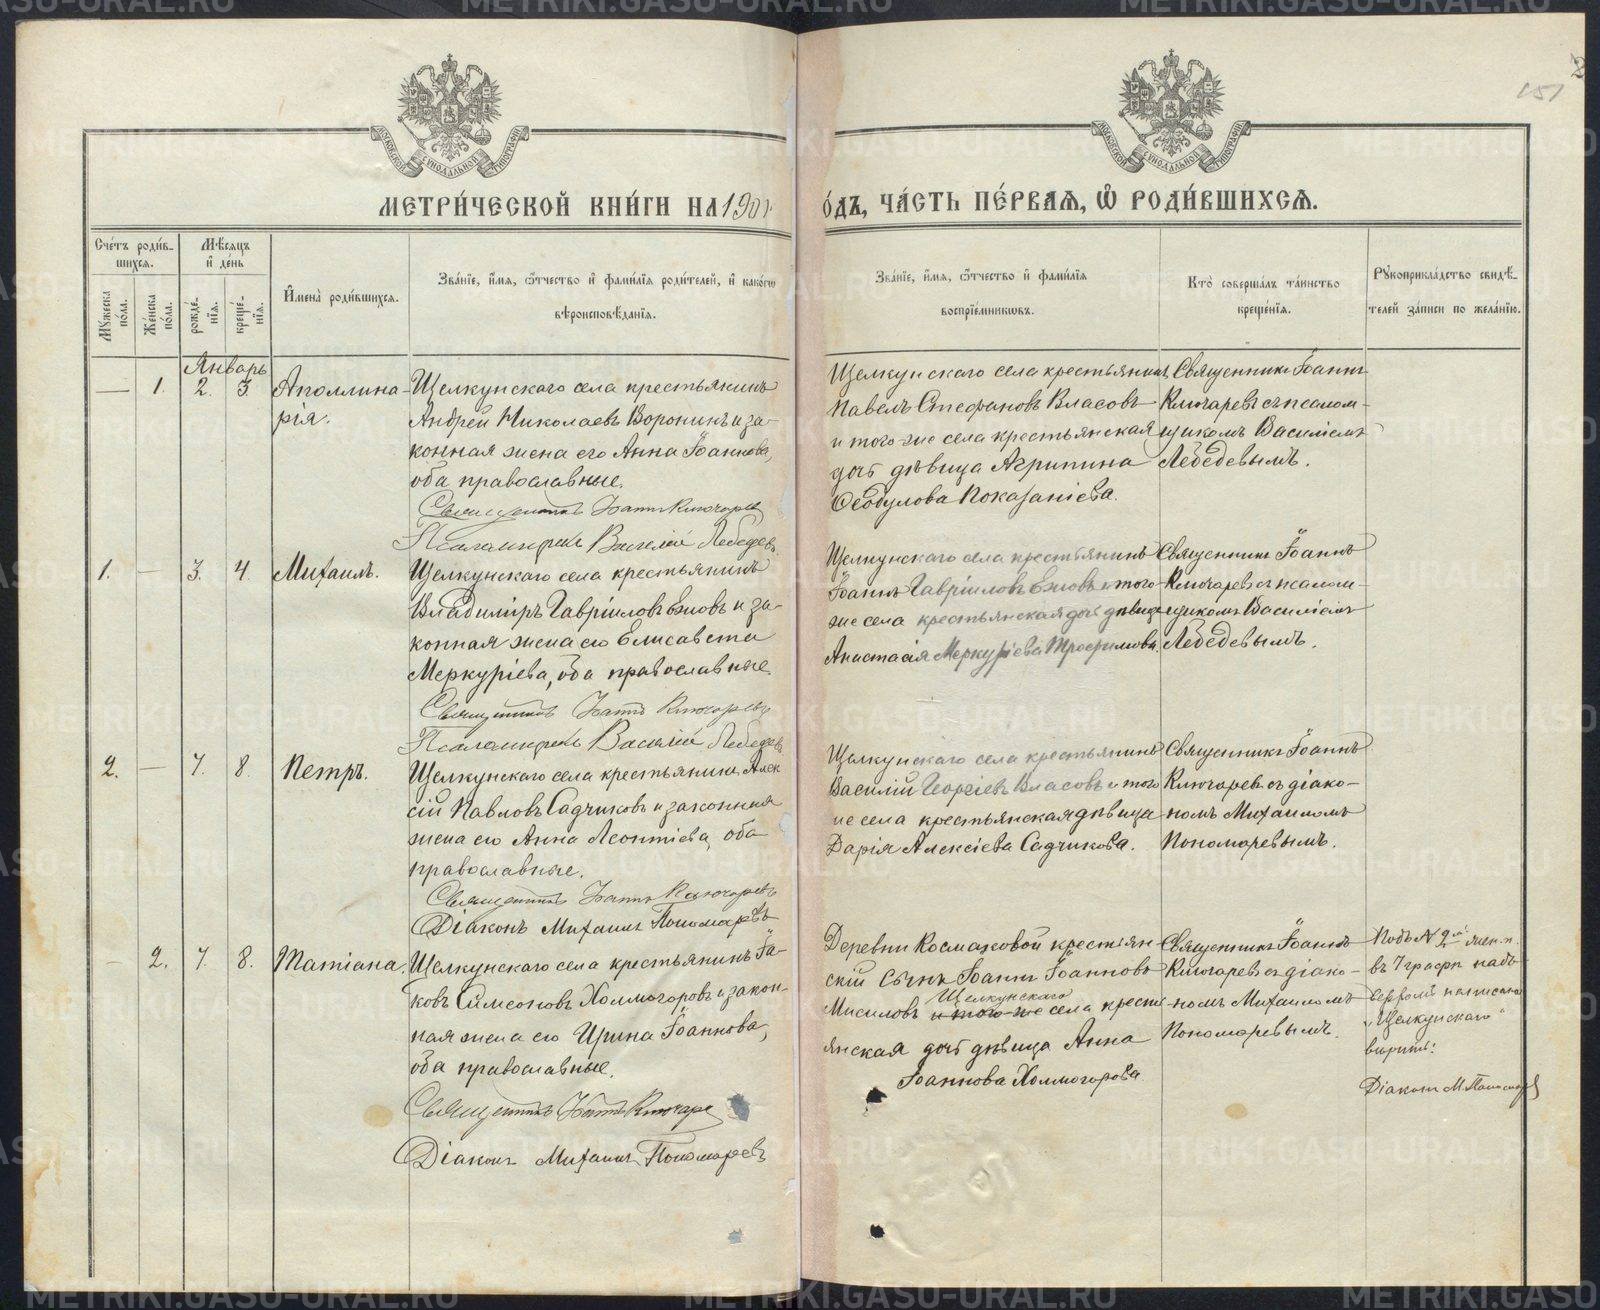 METRIKI.GASU-URAL.RU
151
МОСКОВСКОЙ СѴНОДАЛЬНОЙ ТИПОГРАФІИ
МОСКОВСКОЙ СѴНОДАЛЬНОЙ ТИПОГРАФІИ
МЕТРИ́ЧЕСКОЙ КНИ́ГИ НА 1901
О́ДЪ, ЧА́СТЬ ПЕ́РВАЯ, Ѽ РОДИ́ВШИХСЯ.
Сче́тъ роди́в-
шихся.
Мѣ́сяцъ
и҆ де́нь
Му́жеска
по́ла.
Же́нска
по́ла.
рожде́-
нїя.
креще́-
нїя.
И҆мена̀ роди́вшихся.
Зва́нїе, и҆́мя, ѻ҆́тчество и҆ фами́лїя роди́телей, и҆ како́гѡ
вѣроисповѣ́данїя.
Зва́нїе, и҆́мя, ѻ҆́тчество и҆ фами́лїя
воспрїе́мникѡвъ.
Кто̀ соверша́лъ та́инство
креще́нїя.
Рꙋкоприкла́дство свидѣ́-
телей за́писи по жела́нїю.
Январь
— 1. 2. 3. Аполлина-
рія.
Щелкунскаго села крестьянинъ
Андрей Николаевъ Воронинъ и за-
конная жена его Анна Іоаннова,
оба православные.
Священникъ Іоаннъ Ключаревъ
Псаломщикъ Василій Лебедевъ
Щелкунскаго села крестьянинъ
Павелъ Стефановъ Власовъ
и того же села крестьянская
дочь дѣвица Агрипина
Ѳеодулова Показаніева.
Священникъ Іоаннъ
Ключаревъ съ псалом-
щикомъ Василіемъ
Лебедевымъ.
1. — 3. 4. Михаилъ.
Щелкунскаго села крестьянинъ
Владиміръ Гавріиловъ Еловъ и за-
конная жена его Елисавета
Меркуріева, оба православные.
Священникъ Іоаннъ Ключаревъ
Псаломщикъ Василій Лебедевъ
Щелкунскаго села крестьянинъ
Іоаннъ Гавріиловъ Еловъ и того
же села крестьянская дочь дѣвица
Анастасія Меркуріева Трофимова.
Священникъ Іоаннъ
Ключаревъ съ псалом-
щикомъ Василіемъ
Лебедевымъ.
2. — 7. 8. Петръ.
Щелкунскаго села крестьянинъ Алек
сій Павловъ Садчиковъ и законная
жена его Анна Леонтіева, оба
православные.
Священникъ Іоаннъ Ключаревъ
Діаконъ Михаилъ Пономаревъ
Щелкунскаго села крестьянинъ
Василій Георгіевъ Власовъ и того
же села крестьянская дѣвица
Дарія Алексіева Садчикова.
Священникъ Іоаннъ
Ключаревъ съ діако-
номъ Михаиломъ
Пономаревымъ.
— 2. 7. 8. Татіана.
Щелкунскаго села крестьянинъ Іа-
ковъ Симеоновъ Холмогоровъ и закон-
ная жена его Ирина Іоаннова,
оба православные.
Священникъ Іоаннъ Ключаревъ
Діаконъ Михаилъ Пономаревъ
Деревни Космаковой крестьян
скій сынъ Іоаннъ Іоанновъ
Щелкунскаго
и того же села кресть
янская дочь дѣвица Анна
Іоаннова Холмогорова
Священникъ Іоаннъ
Ключаревъ съ діако-
номъ Михаиломъ
Пономаревымъ.
Подъ № 2мъ жен. п.
въ 7 графѣ надъ
написано
„Щелкунскаго"
вѣрить:
Діаконъ М. Пономаревъ